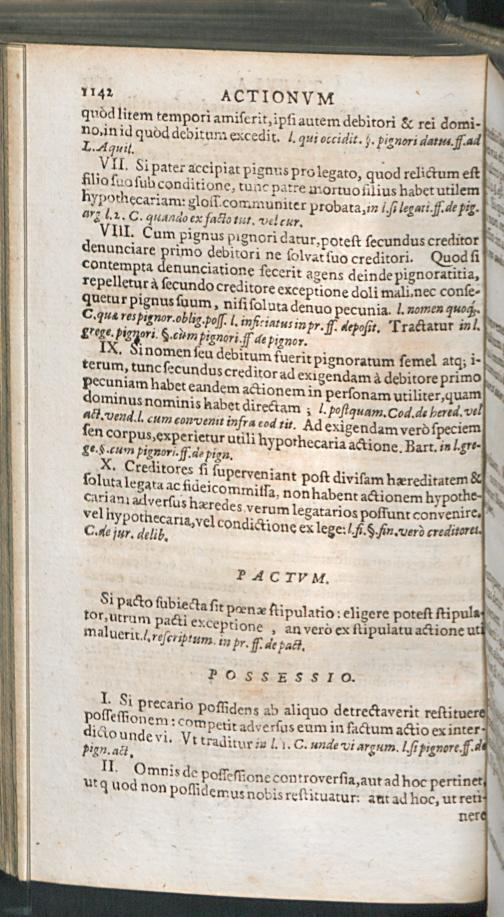 1142 ACTIONVM
quòd litem tempori amiſerit, ipſi autem debitori & rei domi-
no, in id quòd debitum excedit. l. qui occidit. §. pignori datus. ff. ad
L. Aquil.
VII. Si pater accipiat pignus pro legato, quod relictum eſt
filio ſuo ſub conditione, tunc patre mortuo filius habet utilem
hypothecariam: gloſſ. communiter probata, in l. ſi legati. ff. de pig.
arg l. 2. C. quando ex facto tut. vel cur.
VIII. Cum pignus pignori datur, poteſt ſecundus creditor
denunciare primo debitori ne ſolvat ſuo creditori. Quod ſi
contempta denunciatione fecerit agens deinde pignoratitia,
repelletur à ſecundo creditore exceptione doli mali, nec conſe-
quetur pignus ſuum, niſi ſoluta denuo pecunia. l. nomen quoq;.
C. quæ res pignor. oblig. poſſ. l. inficiatus in pr. ff. depoſit. Tractatur in l.
grege. pignori. §. cùm pignori. ff de pignor.
IX. Si nomen ſeu debitum fuerit pignoratum ſemel atq; i-
terum, tunc ſecundus creditor ad exigendam à debitore primo
pecuniam habet eandem actionem in perſonam utiliter, quam
dominus nominis habet directam; l. poſtquam. Cod. de hered. vel
act. vend. l. cum convenit infra eod tit. Ad exigendam verò ſpeciem
ſen corpus, experietur utili hypothecaria actione. Bart. in l. gre-
ge. §. cum pignori. ff. de pign.
X. Creditores ſi ſuperveniant poſt diviſam hæreditatem &
ſoluta legata ac fideicommiſſa, non habent actionem hypothe-
cariam adverſus hæredes, verum legatarios poſſunt convenire,
vel hypothecaria, vel condictione ex lege: l. fi. §. ſin. verò creditores.
C. de jur. delib.
PACTVM.
Si pacto ſubiecta ſit pœnæ ſtipulatio: eligere poteſt ſtipula-
tor, utrum pacti exceptione, an verò ex ſtipulatu actione uti
maluerit. l. reſcriptum. in pr. ff. de pact.
POSSESSIO.
I. Si precario poſſidens ab aliquo detrectaverit reſtituere
poſſeſſionem: competit adverſus eum in factum actio ex inter-
dicto unde vi. Vt traditur in l. 1. C. unde vi argum. l. ſi pignore. ff. de
pign. act.
II. Omnis de poſſeſſione controverſia, aut ad hoc pertinet,
ut q uod non poſſidemus nobis reſtituatur: aut ad hoc, ut reti-
nere